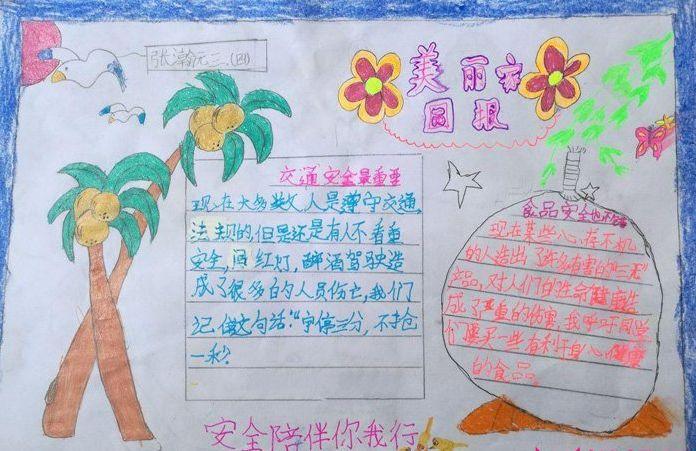 张瀚元三.(四)
美丽家
园报
交通安全最重要
现在大多数人是遵守交通
法规的,但是还是有人不看重
安全,闯红灯,醉酒驾驶造
成了很多的人员伤亡,我们
记住这句话:“宁停三分,不抢
一秒?
食品安全
现在某些人心存不轨
的人造出了许多有害的“三无”
产品,对人们的生命健康造
成了严重的伤害,我呼吁同学
们要买一些有利于身心健康
的食品。
安全陪伴你我行